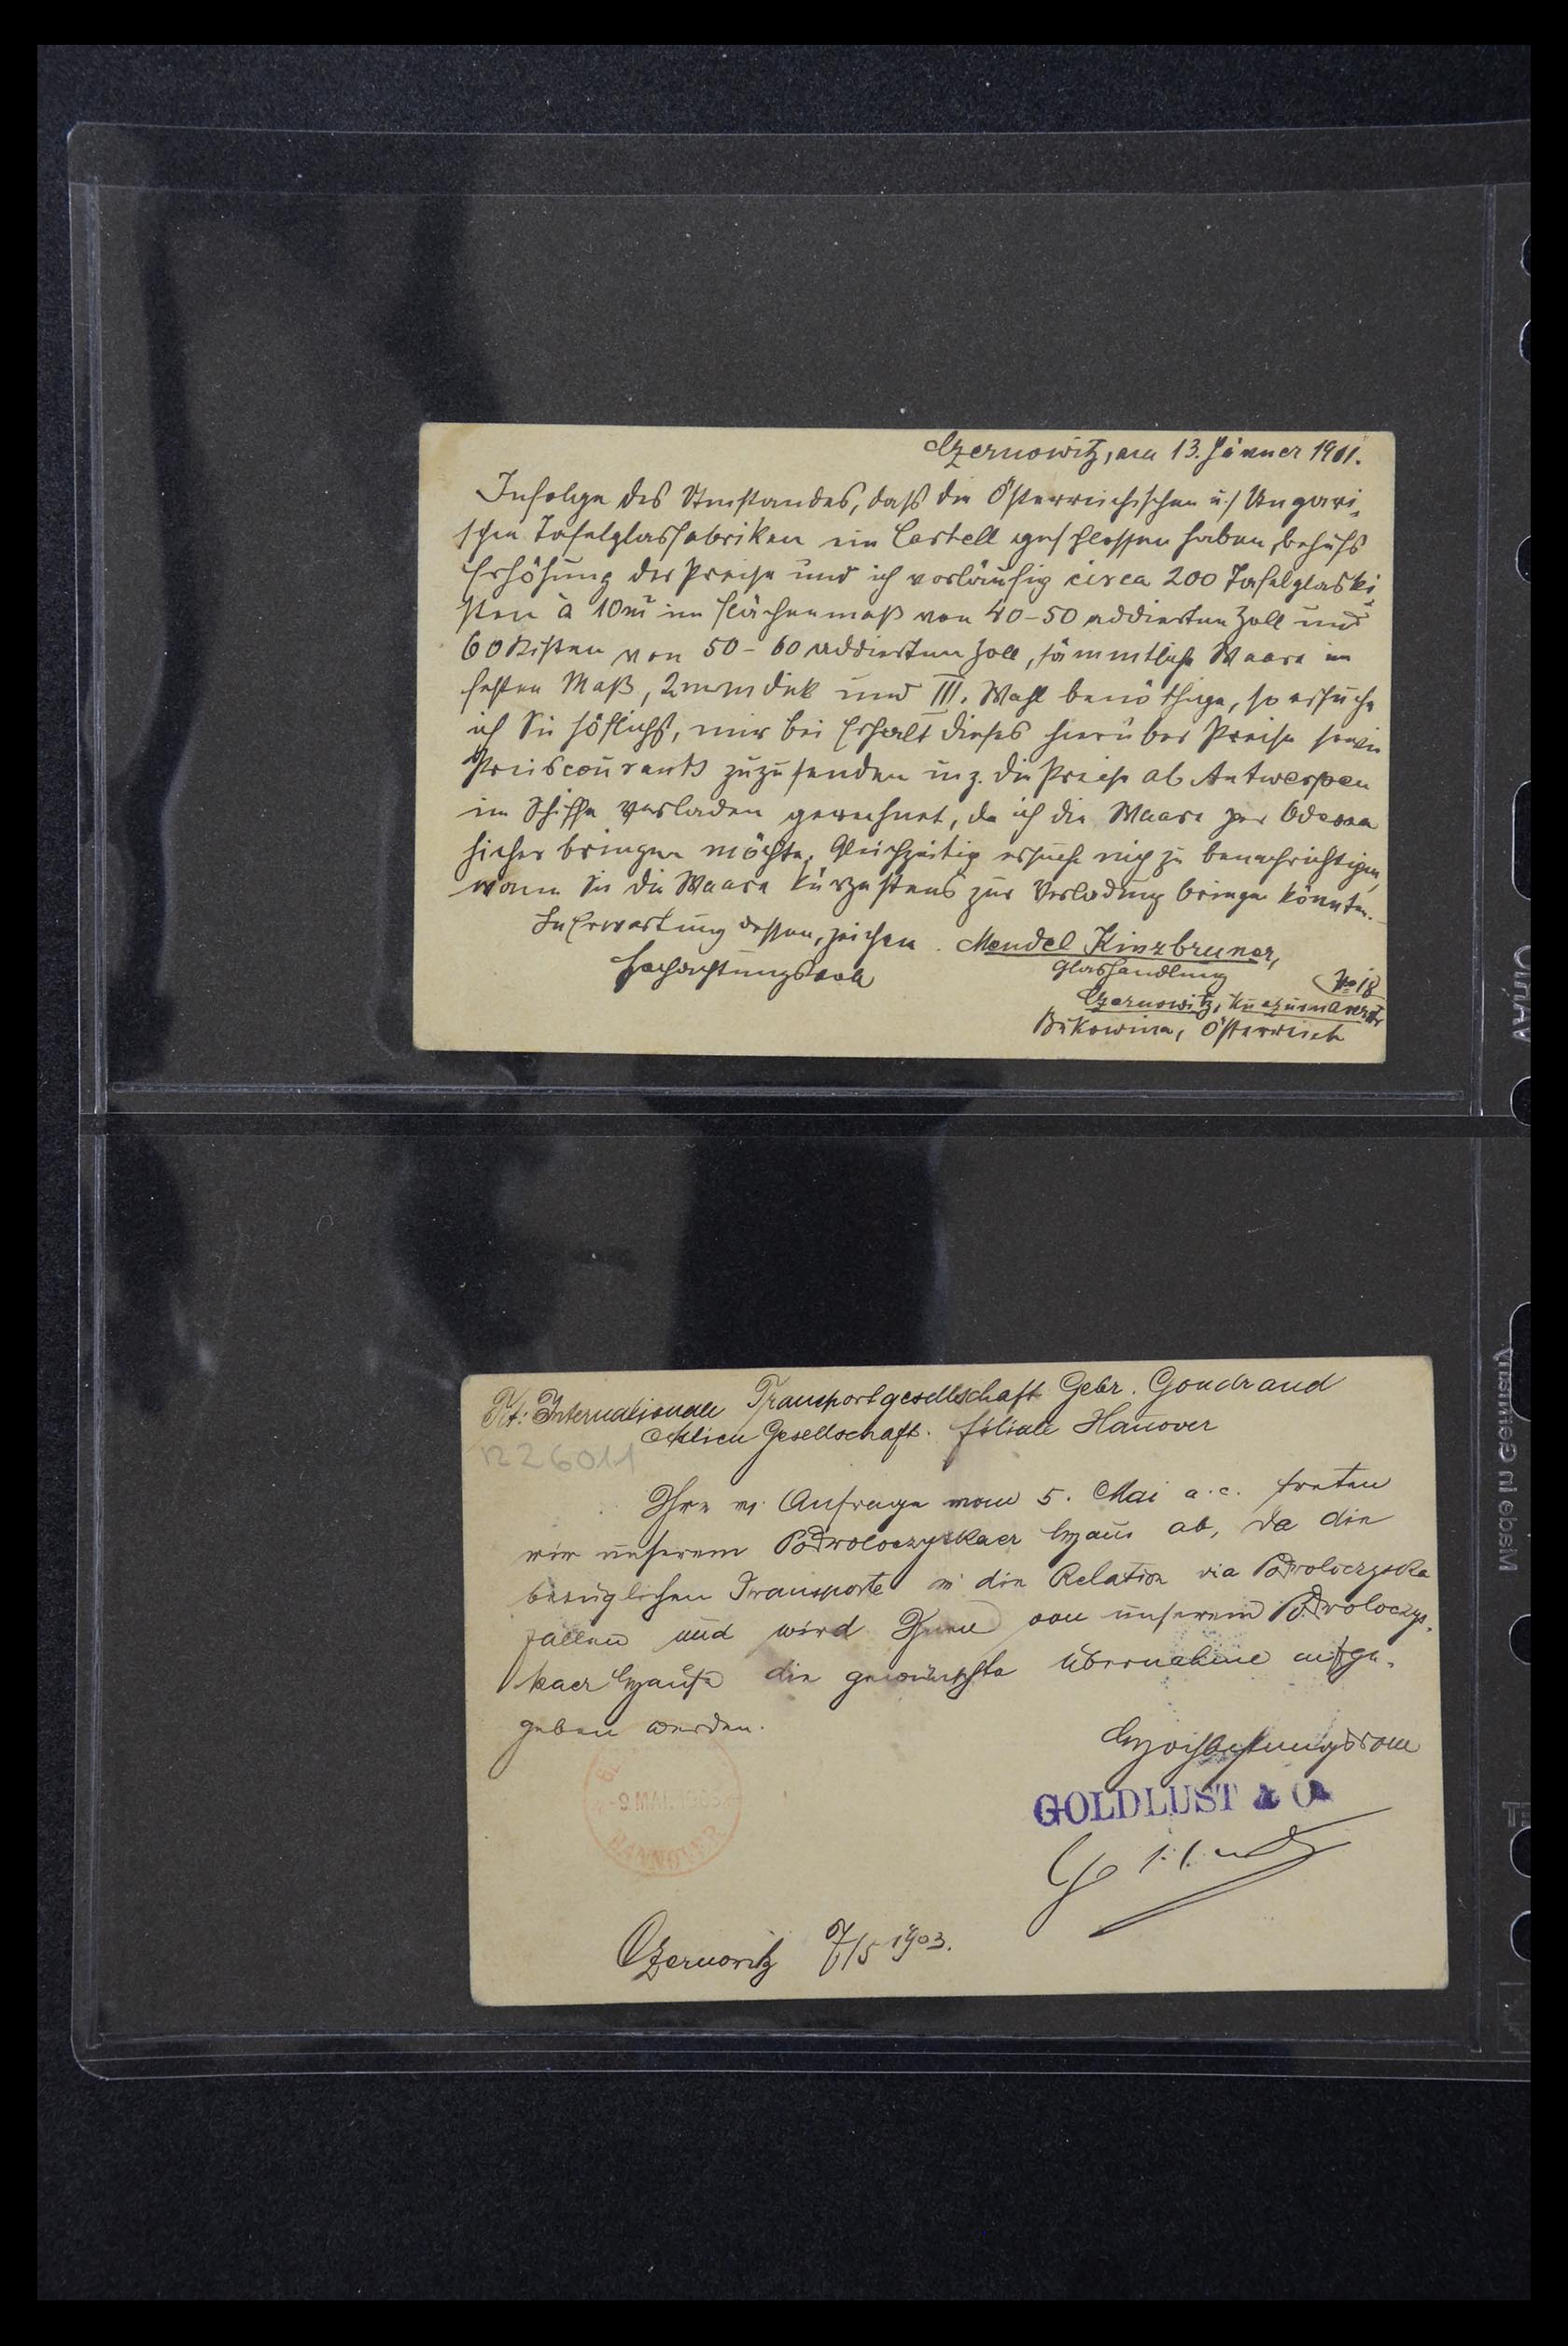 Czernowitz, am 13. Jänner 1901.
Infolge des Umstandes, daß die Österreichischen u./ Ungari-
schen Tafelglasfabriken ein Cartell geschlossen haben, behufs
Erhöhung der Preise und ich vorläufig circa 200 Tafelglaski-
sten à 10m² im Flächenmaß von 40-50 addierten Zoll und
60 Kisten von 50-60 addierten Zoll, sämmtliche Waare im
festen Maß, 2m/m dick und III. Wahl benöthige, so ersuche
ich Sie höflichst, mir bei Erhalt dieses hierüber Preise sowie
Preiscourants zuzusenden u. z. die Preise ab Antwerpen
im Schiffe verladen gerechnet, da ich die Waare per Odessa
hieher bringen möchte. Gleichzeitig ersuche mich zu benachrichtigen,
wann Sie die Waare kürzestens zur Verladung bringen könnten.
In Erwartung dessen, zeichen
Hochachtungsvoll
Mendel Kinzbruner,
Glashandlung
No 18
Czernowitz,
Bukowina, Österreich
Tit: Internationale Transportgesellschaft Gebr. Gondrand
Actien Gesellschaft. Filiale Hanover
R26011
Ihre w. Anfrage vom 5. Mai a. c. treten
wir unserem Podwoloczyskaer Hause ab, da die
bezüglichen Transporte in die Relation via Podwoloczyska
fallen und wird Ihnen von unserem Podwoloczys-
kaer Hause die gewünschte Übernahme aufge-
geben werden.
Hochachtungsvoll
GOLDLUST & Co
9 MAI. 1903
HANNOVER
Czernowitz 7/5 1903.
Made in Germany